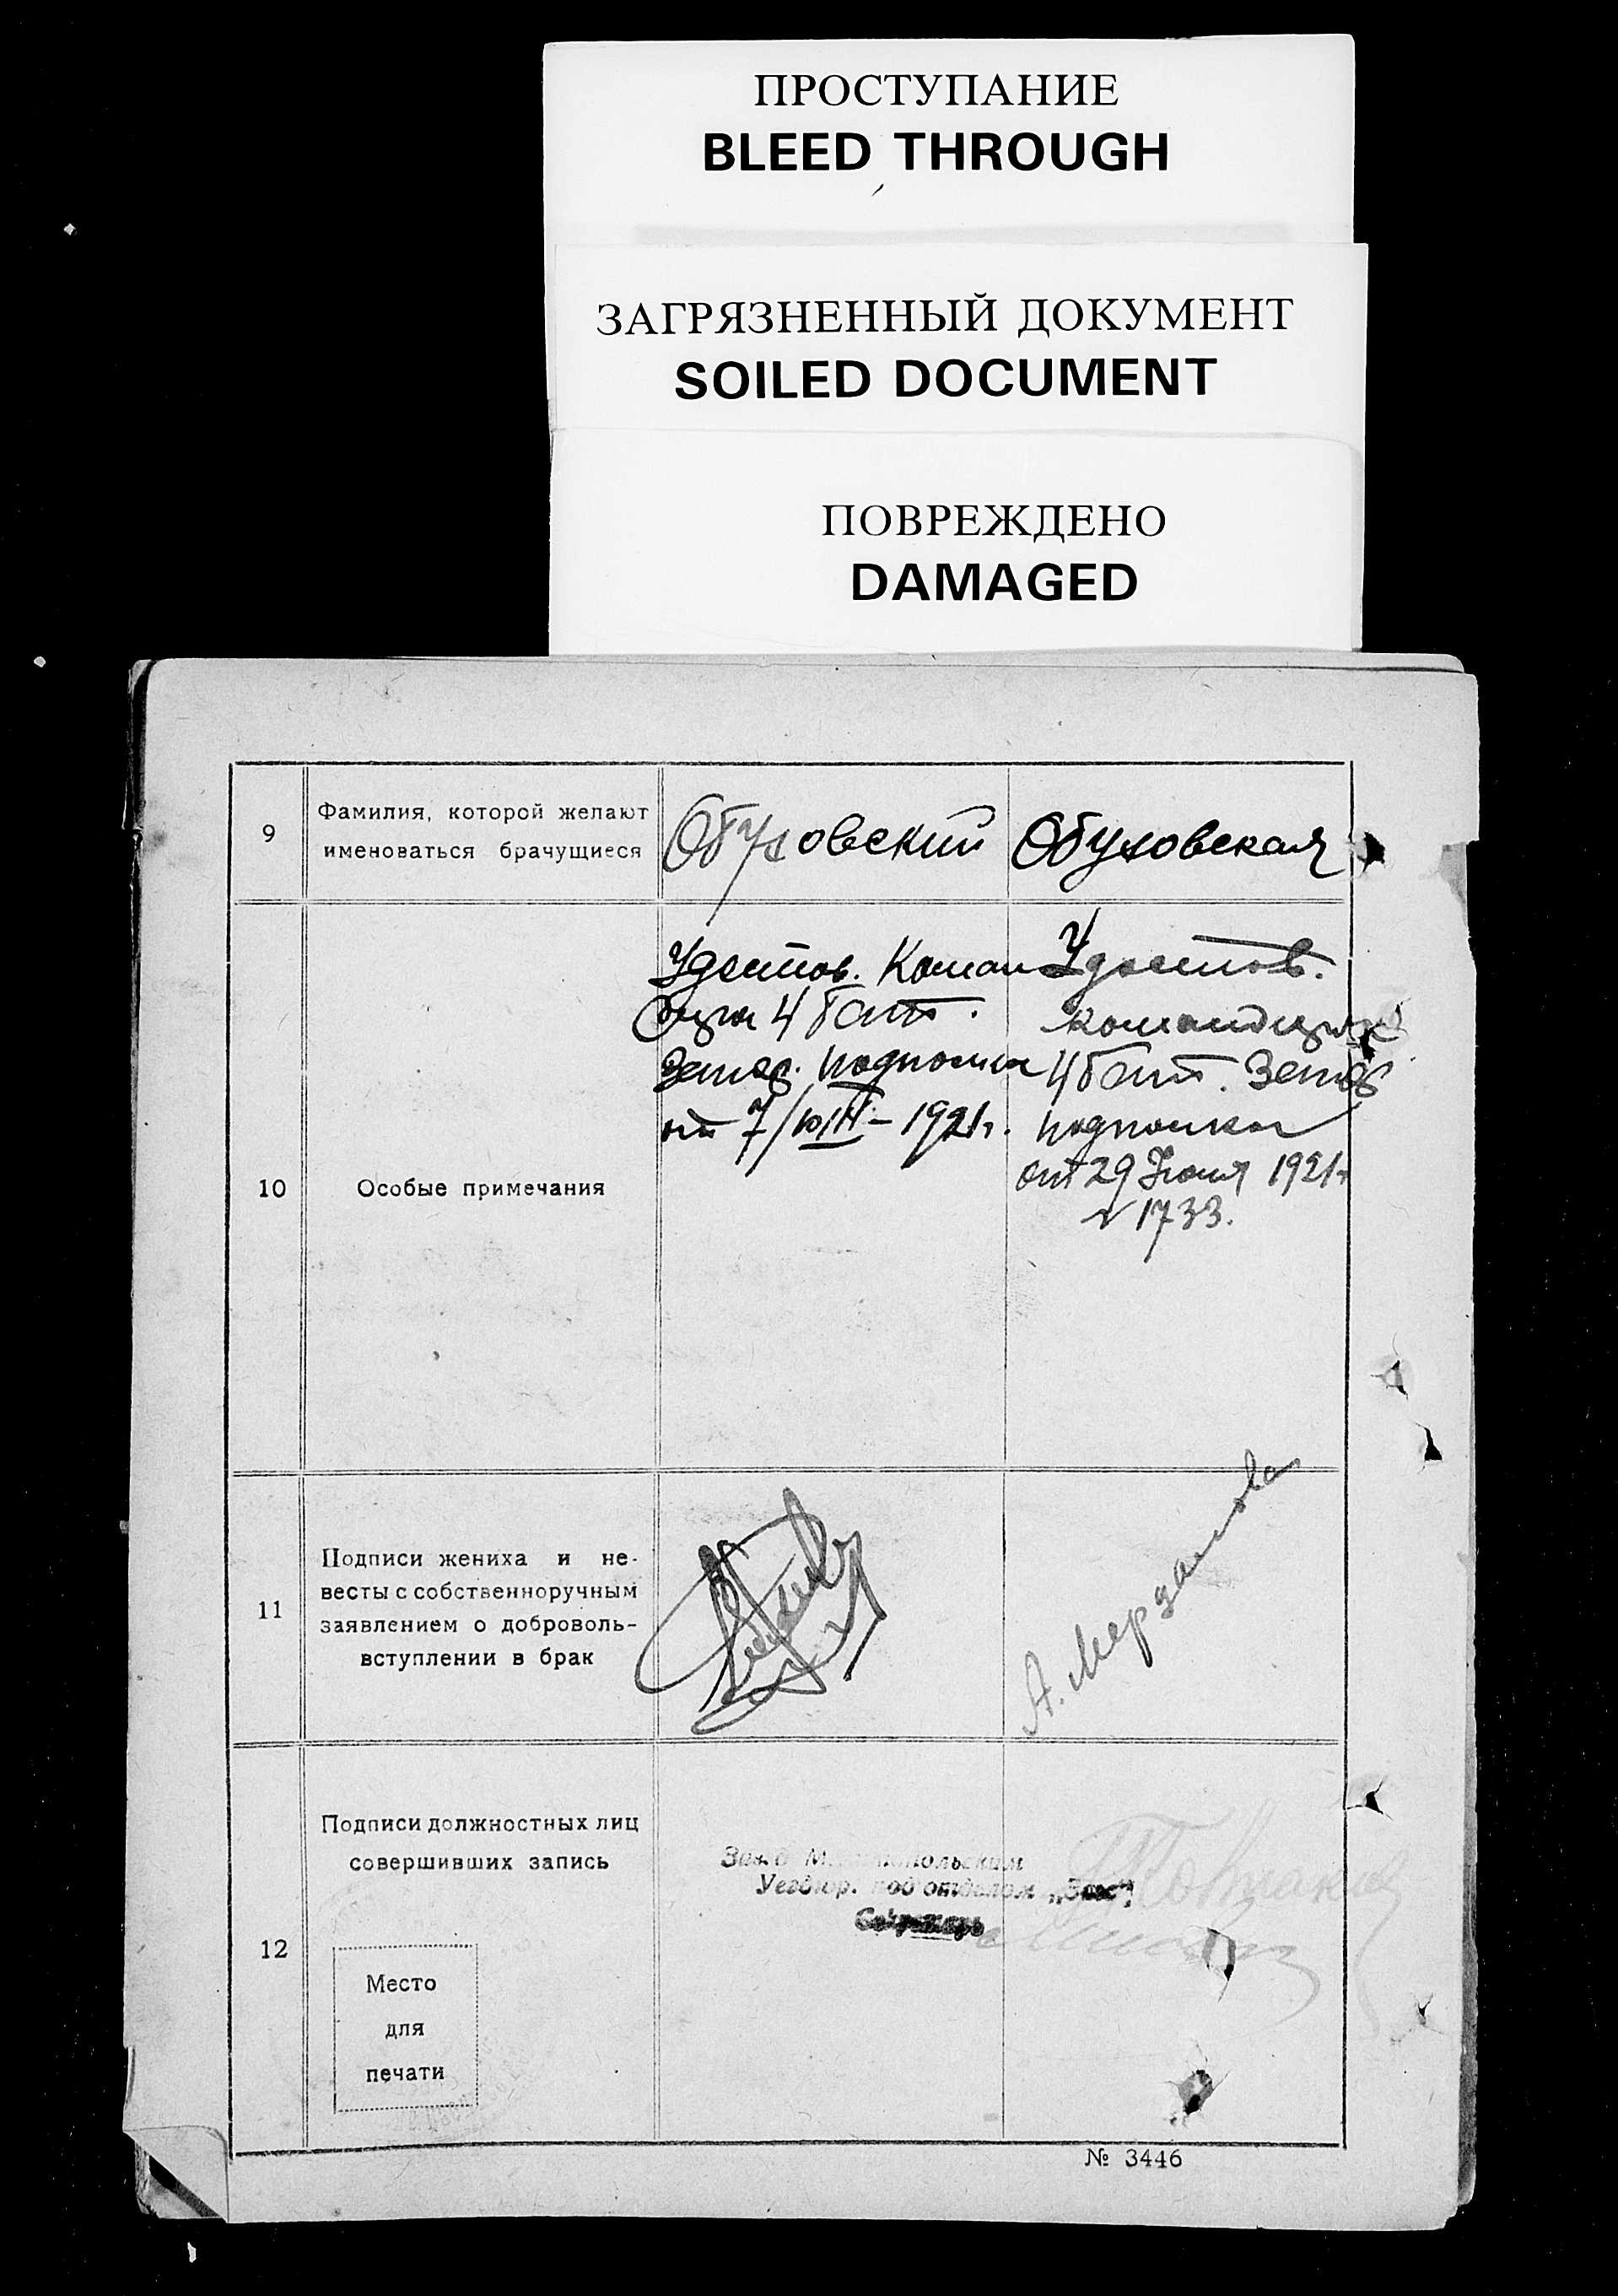 ПРОСТУПАНИЕ
BLEED THROUGH
ЗАГРЯЗНЕННЫЙ ДОКУМЕНТ
SOILED DOCUMENT
ПОВРЕЖДЕНО
DAMAGED
9
Фамилия, которой желают
именоваться брачущиеся
Обуховский
Обуховская
10
Особые примечания
Удостов. Коман
4 бат.
от 7/ – 1921 г.
Удостов.
командира
4 бат.
от 29 Июня 1921 г
№ 1733.
11
Подписи жениха и не-
весты с собственноручным
заявлением о доброволь-
вступлении в брак
А. Мерзамова
12
Подписи должностных лиц
совершивших запись
Уездюр. под отделом „Загс“
Секретарь
Место
для
печати
№ 3446